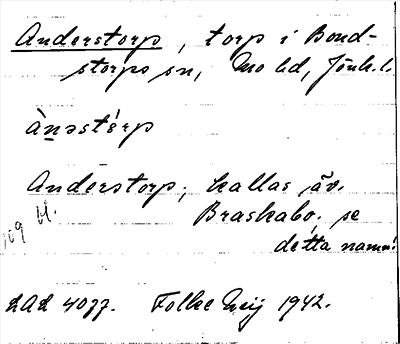 Anderstorp, torp i Bond-
storps sn, Mo hd, Jönk.l.
ànəstérp
Anderstorp; kallas äv.
Braskabo. se
detta namn!
4077. Folke 1942.